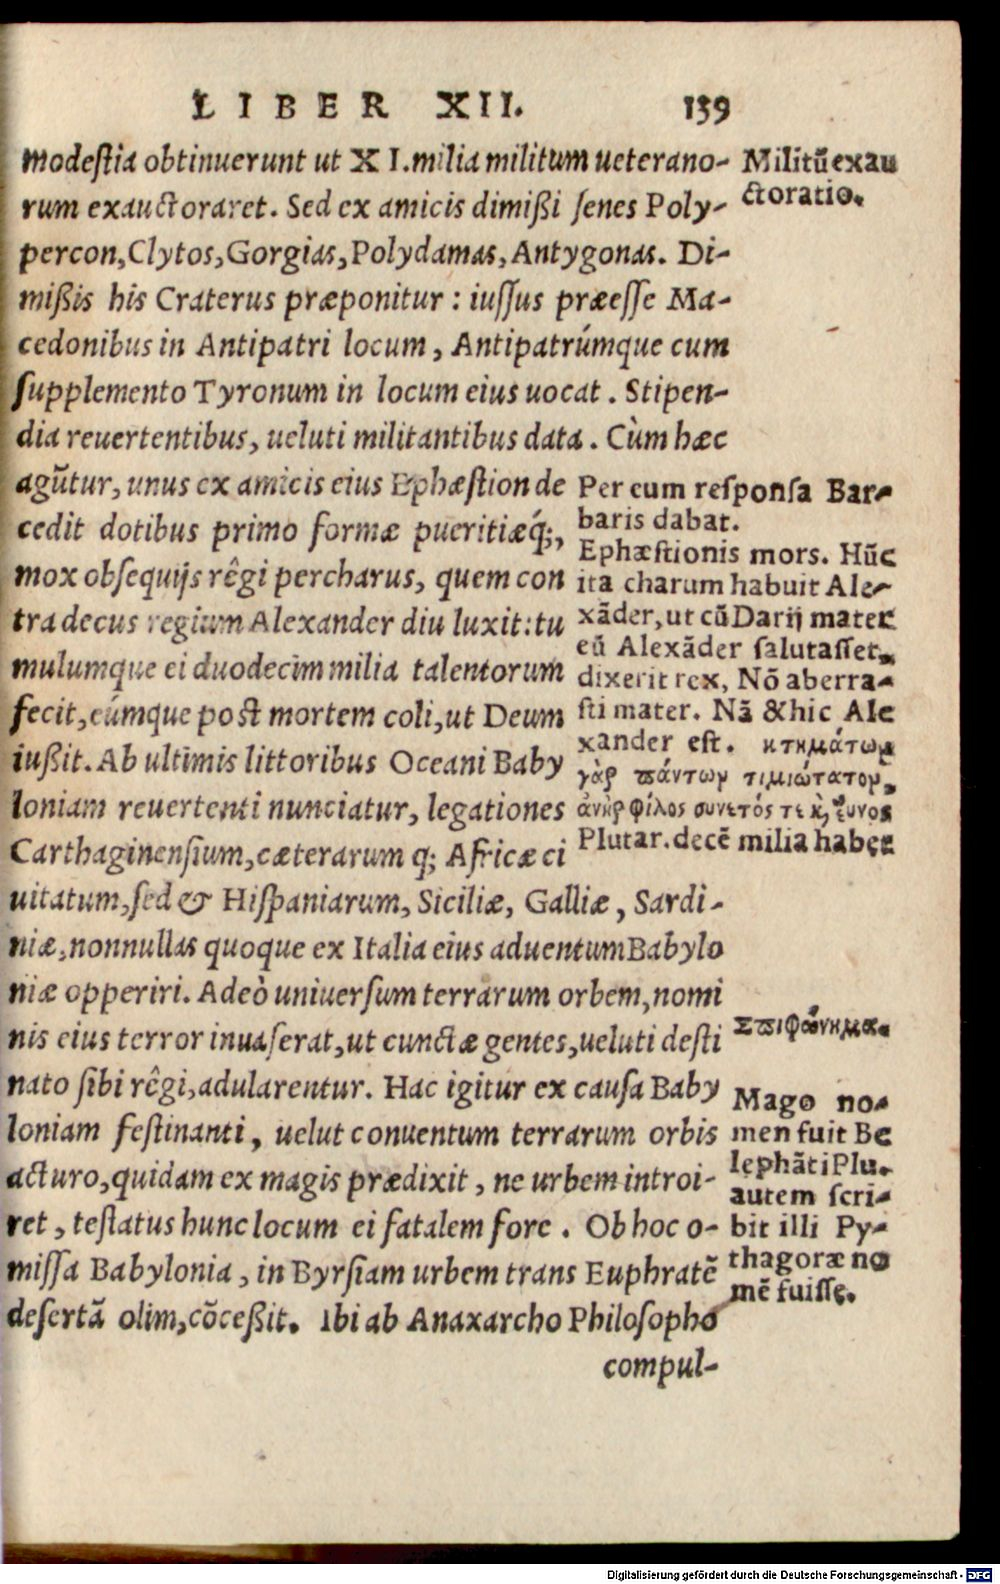 LIBER XII. 139
modestia obtinuerunt ut XI. milia militum ueterano-
rum exauctoraret. Sed ex amicis dimißi senes Poly-
percon, Clytos, Gorgias, Polydamas, Antygonas. Di-
mißis his Craterus præponitur : iussus præesse Ma-
cedonibus in Antipatri locum, Antipatrúmque cum
supplemento Tyronum in locum eius uocat. Stipen-
dia reuertentibus, ueluti militantibus data. Cùm hæc
agũtur, unus ex amicis eius Ephæstion de
cedit dotibus primo formæ pueritiæq́;,
mox obsequijs rêgi percharus, quem con
tra decus regium Alexander diu luxit: tu
mulumque ei duodecim milia talentorum
fecit, eúmque post mortem coli, ut Deum
iußit. Ab ultimis littoribus Oceani Baby
loniam reuertenti nunciatur, legationes
Carthaginensium, cæterarum q; Africæ ci
uitatum, sed & Hispaniarum, Siciliæ, Galliæ, Sardi-
niæ, nonnullas quoque ex Italia eius aduentum Babylo
niæ opperiri. Adeò uniuersum terrarum orbem, nomi
nis eius terror inuaserat, ut cunctæ gentes, ueluti desti
nato sibi rêgi, adularentur. Hac igitur ex causa Baby
loniam festinanti, uelut conuentum terrarum orbis
acturo, quidam ex magis prædixit, ne urbem introi-
ret, testatus hunc locum ei fatalem fore. Ob hoc o-
missa Babylonia, in Byrsiam urbem trans Euphratẽ
desertã olim, cõceßit. Ibi ab Anaxarcho Philosopho
compul-
Militũ exau
ctoratio.
Per eum responsa Bar-
baris dabat.
Ephæstionis mors. Hũc
ita charum habuit Ale-
xãder, ut cũ Darij mater
eũ Alexãder salutasset,
dixerit rex, Nõ aberra-
sti mater. Nã & hic Ale
xander est. κτημάτων
γὰρ πάντων τιμιώτατον,
ἀνὴρ φίλος συνετός τε κ̀,
Plutar. decẽ milia habet
ἐπιφώνημα.
Mago no-
men fuit Be
lephãti Plu.
autem scri-
bit illi Py-
thagoræ no
mẽ fuisse.
Digitalisierung gefördert durch die Deutsche Forschungsgemeinschaft - DFG